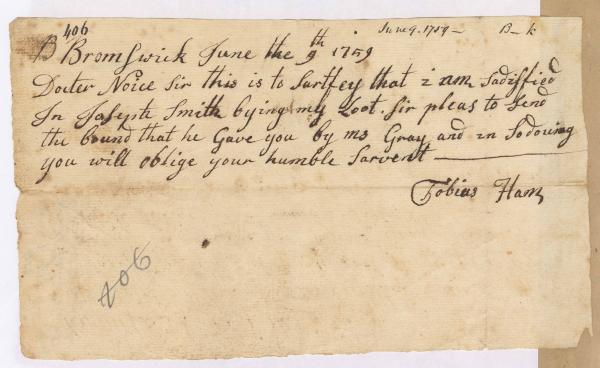 406
June 9. 1759 — B — k
B Bromswick June the 9th 1759
Docter Noice Sir this is to Sartfey that i am Sadiffied
In Joseph Smith bying my Loot. Sir pleas to Send
the bound that he Gave you by ms Gray and in So doing
you will oblige your humble Sarvent
Tobias Ham
406